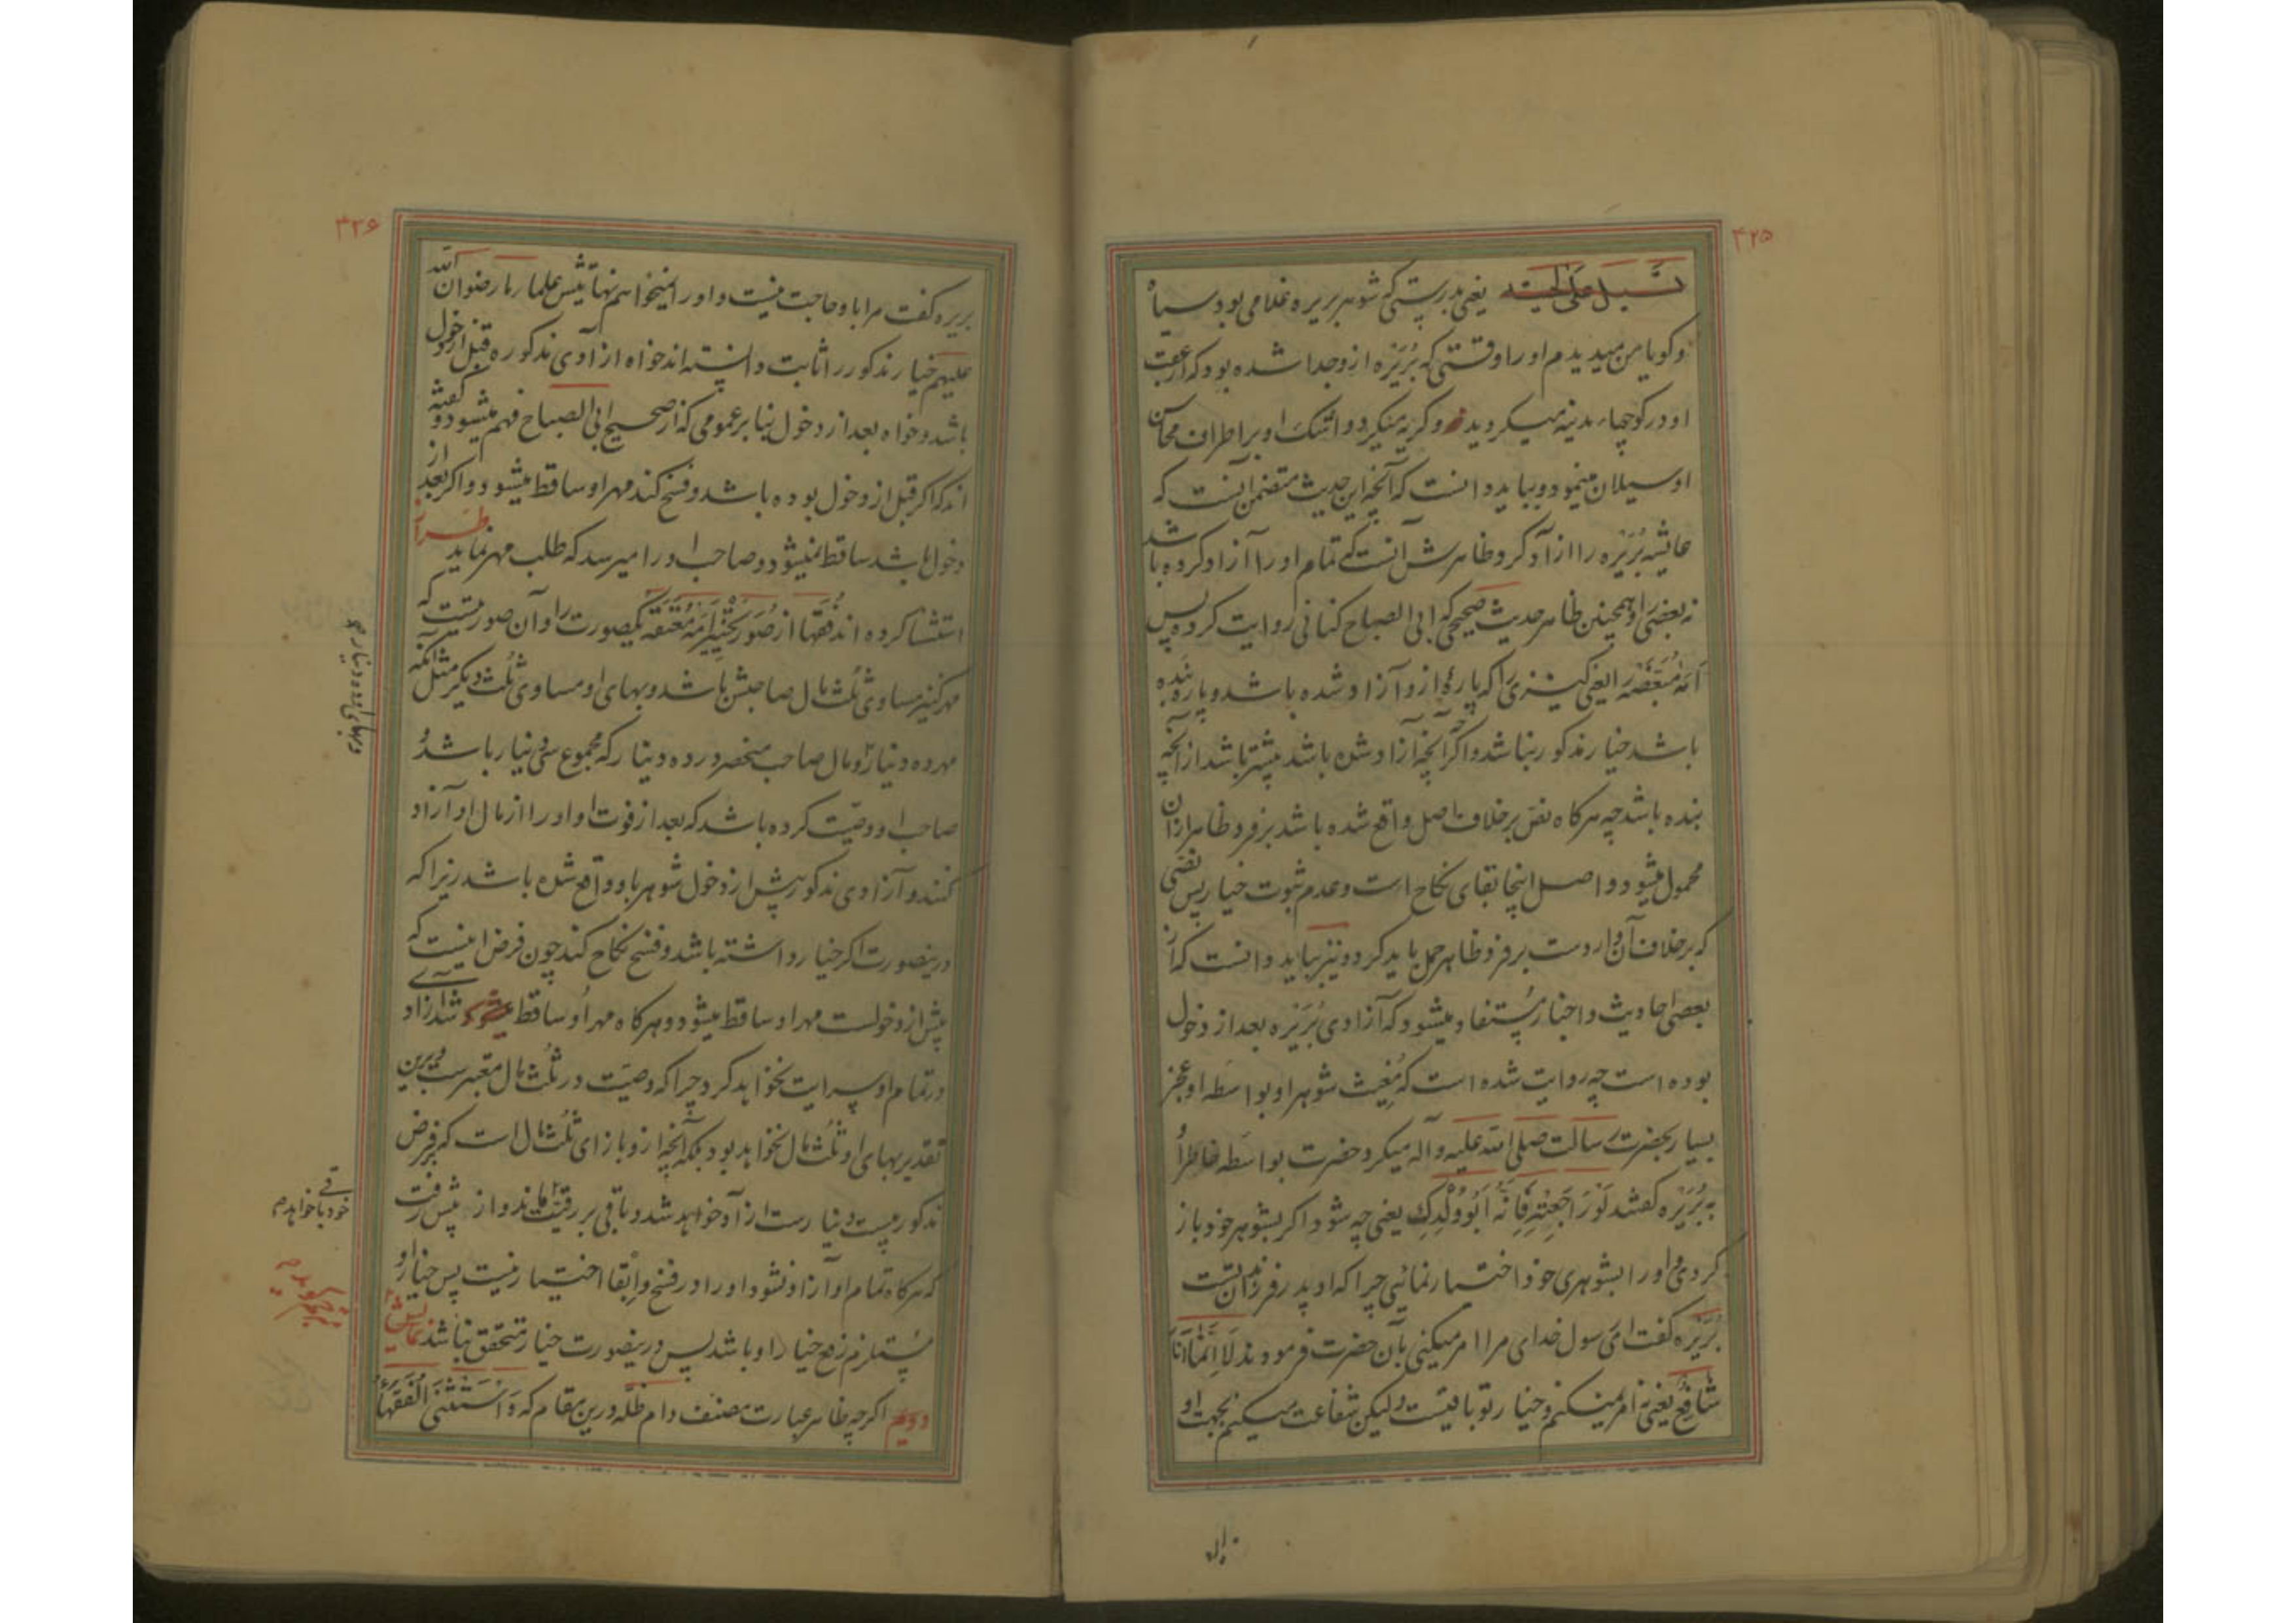 ۴۲۵
تسیل علی لحیته یعنی بدرستی که شوهر بریره غلامی بود سیاه
و کویا من میدیدم او را وقتی که بُرَیْرَه ازو جدا شده بود که از عقب
او در کوچهاء مدینه میکردید و کریه میکرد و اشک او بر اطراف محاسن
او سیلان مینمود و بباید دانست که آنچه این حدیث متضمن آنست که
عایشه بُرَیْرَه را ازآد کرد ظاهرش آنست که تمام او را آزاد کرده باشد
نه بعضی را و همچنین ظاهر حدیث صحیحی که ابی الصباح کنانی روایت کرده پس
اَمَه مُبَعَّضَه را یعنی کنیزی را که پارهٔ ازو آزاد شده باشد و پاره بنده
باشد خیار مذکور نباشد و اکرچه آنچه آزاد شده باشد بیشتر باشد از آنچه
بنده باشد چه هرکاه نص بر خلاف اصل واقع شده باشد بر فرد ظاهر ازان
محمول میشود و اصل اینجا بقای نکاح است و عدم ثبوت خیار پس نصّی
که بر خلاف آن واردست بر فرد ظاهر حمل باید کرد و نیز بباید دانست که از
بعضی احادیث و اخبار مُستفاد میشود که آزادی بُرَیْرَه بعد از دخول
بوده است چه روایت شده است که مُغیث شوهر او بواسَطه او عجز
بسیار بحضرت رسالت صلی الله علیه و آله میکرد حضرت بواسَطه خاطر اُو
به بُرَیْرَه کفتند لَوْ رَاجَعْتِهِ فَاِنَّهُ اَبُو وُلْدِكِ یعنی چه شود اکر بشوهر خود باز
کردی و او را بشوهری خود اختیار نمائی چرا که او پدر فرزندان تست
بُرَیْرَه کفت ای رسول خدای مرا امر میکنی بآن حضرت فرمودند لَا اِنَّمَا اَنَا
شَافِعٌ یعنی نه امر نمیکنم و خیار تو باقیست ولیکن شفاعت میکنم بجهت او
۴۲۶
بریره کفت مرا با او حاجت نیست و او را نمیخواهم نهایتش علماء ما رضوان الله
علیهم خیار مذکور را ثابت دانسته اند خواه ازآدی مذکوره قبل از دخول
باشد و خواه بعد از دخول بنا بر عمومی که از صحیح ابی الصباح فهم میشود و کفته
اند که اکر قبل از دخول بوده باشد و فسخ کند مهر او ساقط میشود و اکر بعد از
دخول باشد ساقط نمیشود و صاحب او را میرسد که طلب مهر نماید
استثنا کرده اند فقها از صُوَر تَخْیِیرِ اَمَه مُعْتَقَه یکصورت را و آن صورتیست که
مهر کنیز مساوی ثلث مال صاحبش باشد و بهای او مساوی ثلث دیکر مثل آنکه
مهر ده دینار و مال صاحب منحصر در ده دینار که مجموع سی دینار باشد و
صاحب او وصیّت کرده باشد که بعد از فوت او او را از مال او آزاد
کنند و آزادی مذکور پیش از دخول شوهر باو واقع شده باشد زیرا که
درینصورت اکر خیار داشته باشد و فسخ نکاح کند چون فرض اینست که
پیش از دخولست مهر او ساقط میشود و هرکاه مهر او ساقط شد آزادی
در تمام او سرایت نخواهد کرد چرا که وصیّت در ثلث مال معتبرست و برین
تقدیر بهای او ثلث مال نخواهد بود بلکه آنچه ازو بازای ثلث مال است که بفرض
مذکور بیست دینارست ازآد خواهد شد و باقی بر رقیّت ماند و از پیش رفت
که هرکاه تمام او آزاد نشود او را در فسخ و اِبقا اختیار نیست پس خیار او
مُستلزم رفع خیار او باشد پس درینصورت خیار متحقق نباشد
دویم اکرچه ظاهر عبارت مصنف دام ظلّه درین مقام که وَ اسْتَثْنَی الْفُقَهَاءُ
و بهای او ده دینار